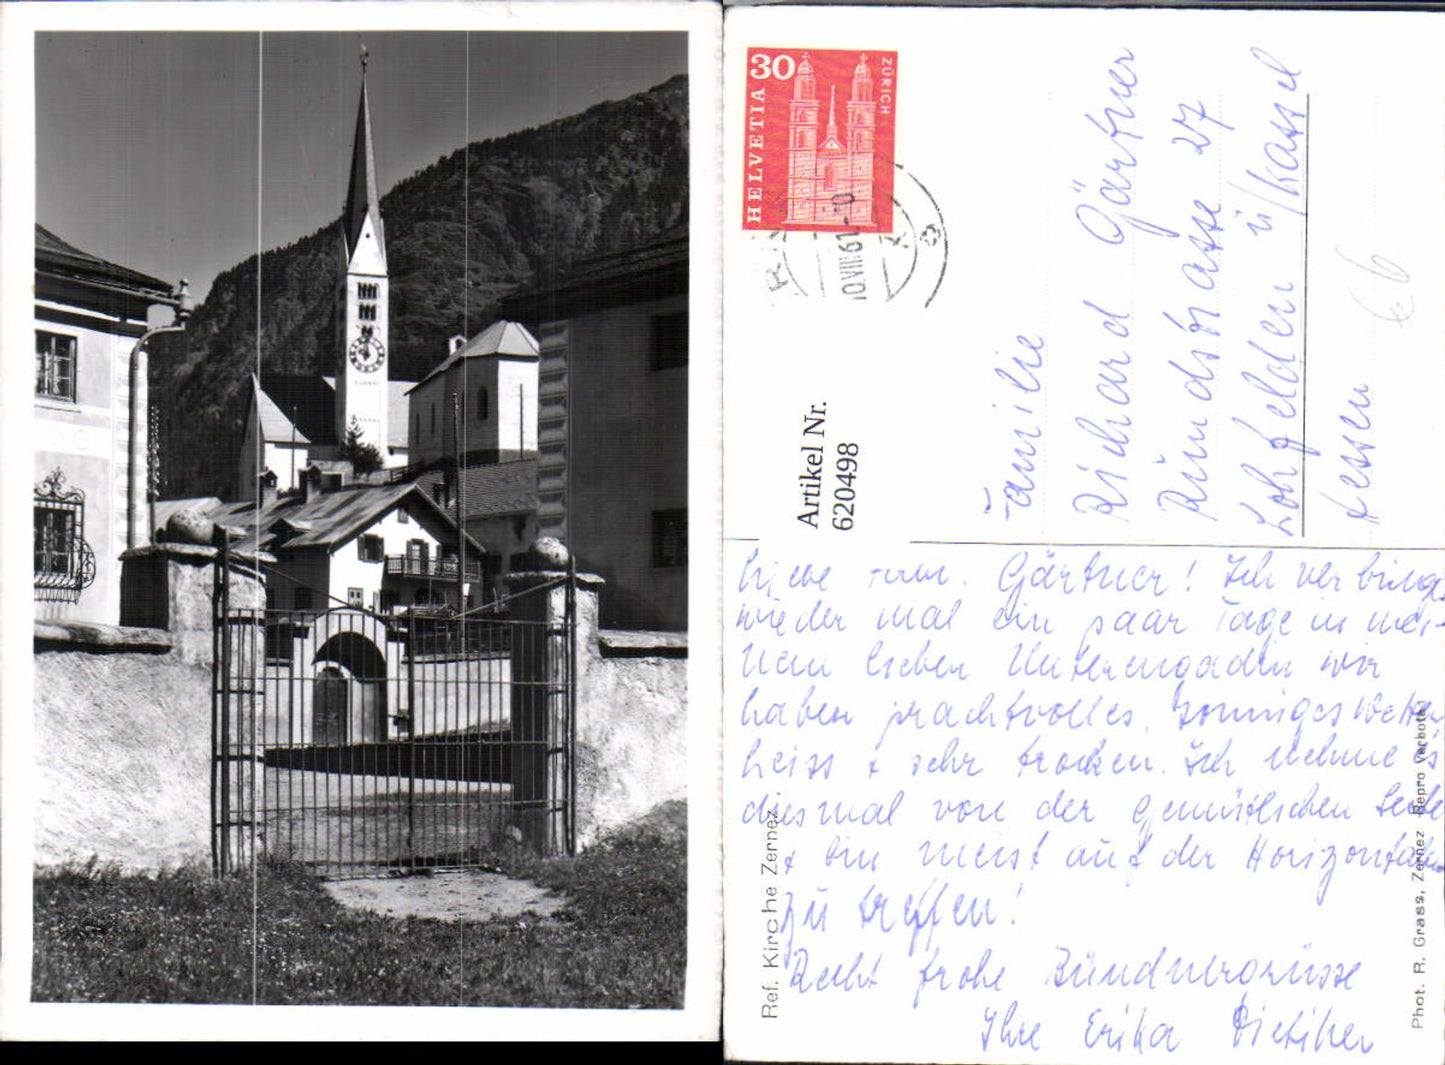 30
HELVETIA
ZÜRICH
10.VIII.61.-10
Artikel Nr.
620498
Familie
Richard Gärtner
Rundstrasse 27
Lohfelden ü/Kassel
Hessen
€ 6
Liebe Fam. Gärtner! Ich verbringe
wieder mal ein paar Tage in mei-
nem lieben Unterengadin wir
haben prachtvolles, sonniges Wetter
heiss + sehr trocken. Ich nehme es
diesmal von der gemütlichen Seite
+ bin meist auf der Horizontalen
zu treffen!
Recht frohe Bündnergrüsse
Ihre Erika Dietiker
Ref. Kirche Zernez.
Phot. R. Grass, Zernez Repro verboten